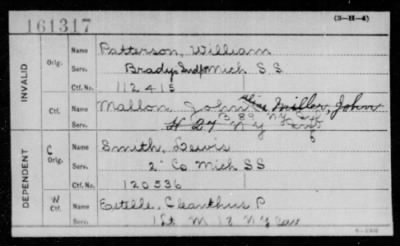 161317
(3-H-4)
INVALID
Orig.
Name Patterson, William
Serv. Bradys Indpt Mich S S
Ctf. No. 112415
Ctf.
Name Mallon John alias Miller, John
Serv. H 27 N Y
DEPENDENT
C
Orig.
Name Smith, Lewis
Serv. 2" Co Mich SS
Ctf. No. 120536
W
Ctf.
Name Estelle, Cleanthus P
1st M 12 N Y Cav